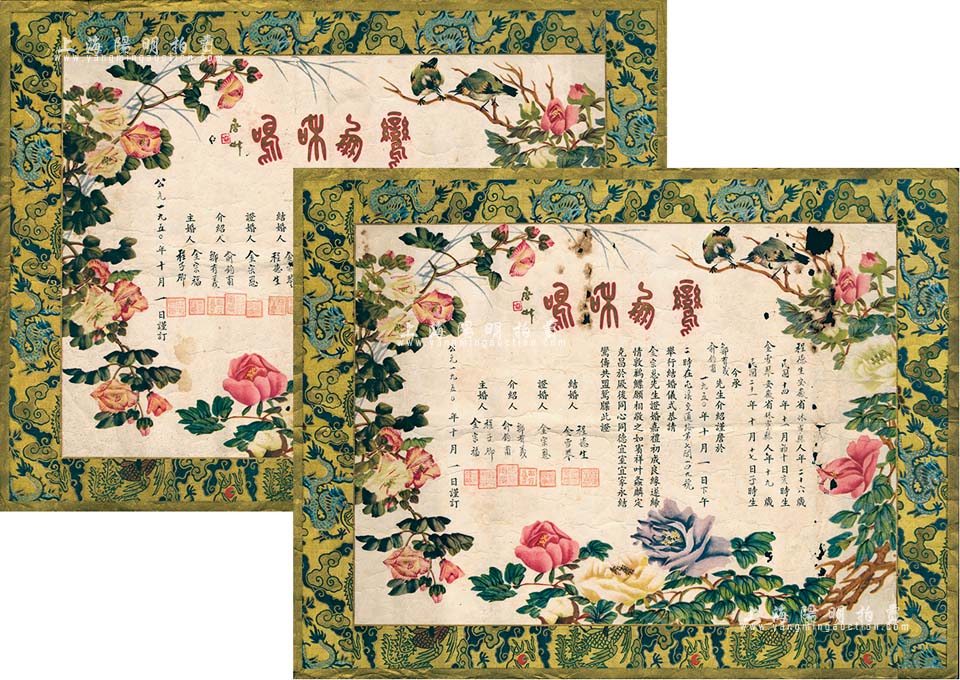 上海陽明拍賣
www.yangmingauction.com
鸞鳳和鳴
唐竹
結婚人
程德生
證婚人 金宗慈
介紹人 鄒有義
俞鈞甫
主婚人 金宗福
程子卿
公元一九五〇年十月一日謹訂
鸞鳳和鳴
唐竹
程德生安徽省休寧縣人年二十六歲
民國十四年十二月初十日亥時生
金雪琴安徽省休寧縣人年十九歲
民國二十一年十月十七日子時生
今承
鄒有義
俞鈞甫
先生介紹謹詹於
一九五〇年十月一日下午
二時在屯溪
舉行結婚儀式恭請
金宗慈先生證婚嘉禮初成良緣遂締
情敦鶼鰈願相敬之如賓祥叶螽麟定
克昌於厥後同心同德宜室宜家永結
鸞儔共盟鴛牒此證
結婚人 程德生
金雪琴
證婚人 金宗慈
介紹人 鄒有義
俞鈞甫
主婚人 程子卿
金宗福
公元一九五〇年十月一日謹訂
上海陽明拍賣
www.yangmingauction.com
上海陽明拍賣
www.yangmingauction.com